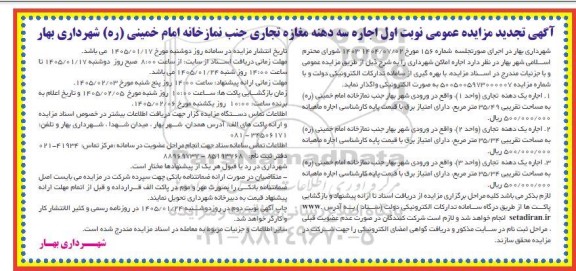 آگهی تجدید مزایده عمومی نوبت اول اجاره سه دهنه مغازه تجاری جنب نمازخانه امام خمینی (ره) شهرداری بهار
شهرداری بهار در اجرای صورتجلسه شماره ۱۵۶ مورخ ۱۴۰۴/۰۷/۰۲ شورای محترم
اسلامی شهر بهار در نظر دارد اجاره اماکن شهرداری را به شرح ذیل از طریق مزایده عمومی
و با جزئیات مندرج در اسناد مزایده، با بهره گیری از سامانه تدارکات الکترونیکی دولت و با
شماره مزایده به صورت الکترونیکی واگذار نماید.
۱. اجاره یک دهنه تجاری (واحد ۱)، واقع در ورودی شهر بهار جنب نمازخانه امام خمینی (ره)
به مساحت تقریبی ۳۵/۴۹ متر مربع، دارای امتیاز برق با قیمت پایه کارشناسی اجاره ماهیانه
۵۰/۰۰۰/۰۰۰ ریال.
۲. اجاره یک دهنه تجاری (واحد ۲)، واقع در ورودی شهر بهار جنب نمازخانه امام خمینی (ره)
به مساحت تقریبی متر مربع، دارای امتیاز برق با قیمت پایه کارشناسی اجاره ماهیانه
۵۰/۰۰۰/۰۰۰ ریال.
۳. اجاره یک دهنه تجاری (واحد ۳)، واقع در ورودی شهر بهار جنب نمازخانه امام خمینی (ره)
به مساحت تقریبی متر مربع، دارای امتیاز برق با قیمت پایه کارشناسی اجاره ماهیانه
۵۰/۰۰۰/۰۰۰ ریال.
لازم بذکر می باشد کلیه مراحل برگزاری مزایده از دریافت اسناد تا ارائه پیشنهاد و بازگشایی
پاکت ها از طریق درگاه سامانه تدارکات الکترونیکی دولت (ستاد) به آدرس www.
setadiran.ir انجام خواهد شد و لازم است شرکت کنندگان در صورت عدم عضویت قبلی
، مراحل ثبت نام در سایت مذکور و دریافت گواهی امضای الکترونیکی را جهت شرکت در
مزایده محقق سازند.
تاریخ انتشار مزایده در سامانه روز دوشنبه مورخ ۱۴۰۵/۰۱/۱۷ می باشد.
مهلت زمانی دریافت اسناد از سایت: از ساعت ۸:۰۰ صبح روز دوشنبه ۱۴۰۵/۰۱/۱۷ تا
ساعت ۱۰:۰۰ روز شنبه
مهلت زمانی ارائه پیشنهاد: ساعت ۱۴:۰۰ روز پنج شنبه مورخ ۱۴۰۵/۰۲/۰۳
زمان بازگشایی پاکت ها: ساعت ۱۰:۰۰ روز شنبه مورخ ۱۴۰۵/۰۲/۰۵ و تاریخ اعلام به
برنده ساعت ۱۰:۰۰ روز یکشنبه مورخ ۱۴۰۵/۰۲/۰۶
اطلاعات تماس دستگاه مزایده گزار جهت دریافت اطلاعات بیشتر در خصوص اسناد مزایده
و ارائه پاکت های الف: آدرس همدان، شهر بهار، میدان شهدا، شهرداری بهار و تلفن:
اطلاعات تماس سامانه ستاد جهت انجام مراحل عضویت در سامانه: مرکز تماس: ۴۱۹۳۴-۰۲۱
دفتر ثبت نام: ۸۸۹۶۹۷۳۷ - ۸۵۱۹۳۷۶۸
شهرداری در رد یا قبول هر یک از پیشنهادها مختار است.
- متقاضیان در صورت ارائه ضمانتنامه بانکی جهت سپرده شرکت در مزایده می بایست اصل
ضمانتنامه بانکی را بصورت مهر و موم در پاکت الف قرارداده و قبل از اتمام مهلت ارائه
پیشنهاد قیمت به دبیرخانه شهرداری تحویل نمایند.
چاپ آگهی نوبت دوم در روز دوشنبه در روزنامه رسمی و کثیر الانتشار کار
و کارگر خواهد شد.
سایر اطلاعات و جزئیات مربوط به معامله در اسناد مزایده مندرج شده است.
شهرداری بهار